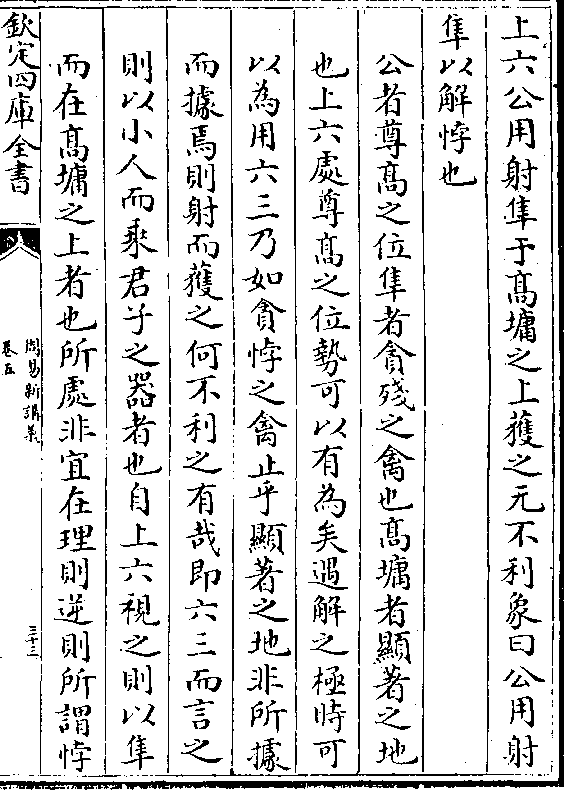 上六公用射隼于髙墉之上獲之无不利象曰公用射
隼以解悖也
公者尊髙之位隼者貪殘之禽也髙墉者顯著之地
也上六處尊髙之位勢可以有為矣遇解之極時可
以為用六三乃如貪悖之禽止乎顯著之地非所據
而據焉則射而獲之何不利之有哉即六三而言之
則以小人而乘君子之器者也自上六視之則以隼
而在髙墉之上者也所處非宜在理則逆則所謂悖
欽定四庫全書
周易新講義
卷五
三十三